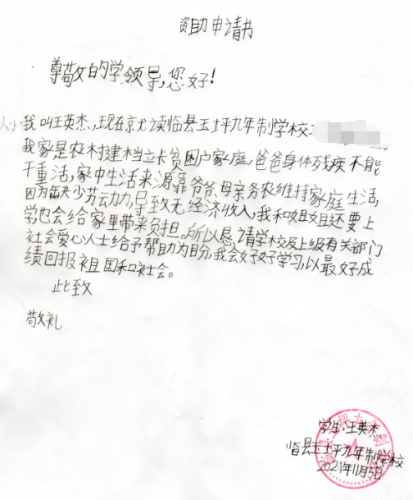 资助申请书
尊敬的学领导,您好!
我叫王英杰,现在就读临县玉坪九年制学校
我家是农村建档立卡贫困户家庭,爸爸身体残疾不能
干重活,家中生活来源靠爷爷、母亲务农维持家庭生活,
因为缺少劳动力,导致无经济收入,我和姐姐还要上
学也会给家里带来负担。所以恳请学校及上级有关部门
社会爱心人士给予帮助为盼,我会好好学习,以最好成
绩回报祖国和社会。
此致
敬礼
学生:王英杰
临县玉坪九年制学校
2021年11月5日